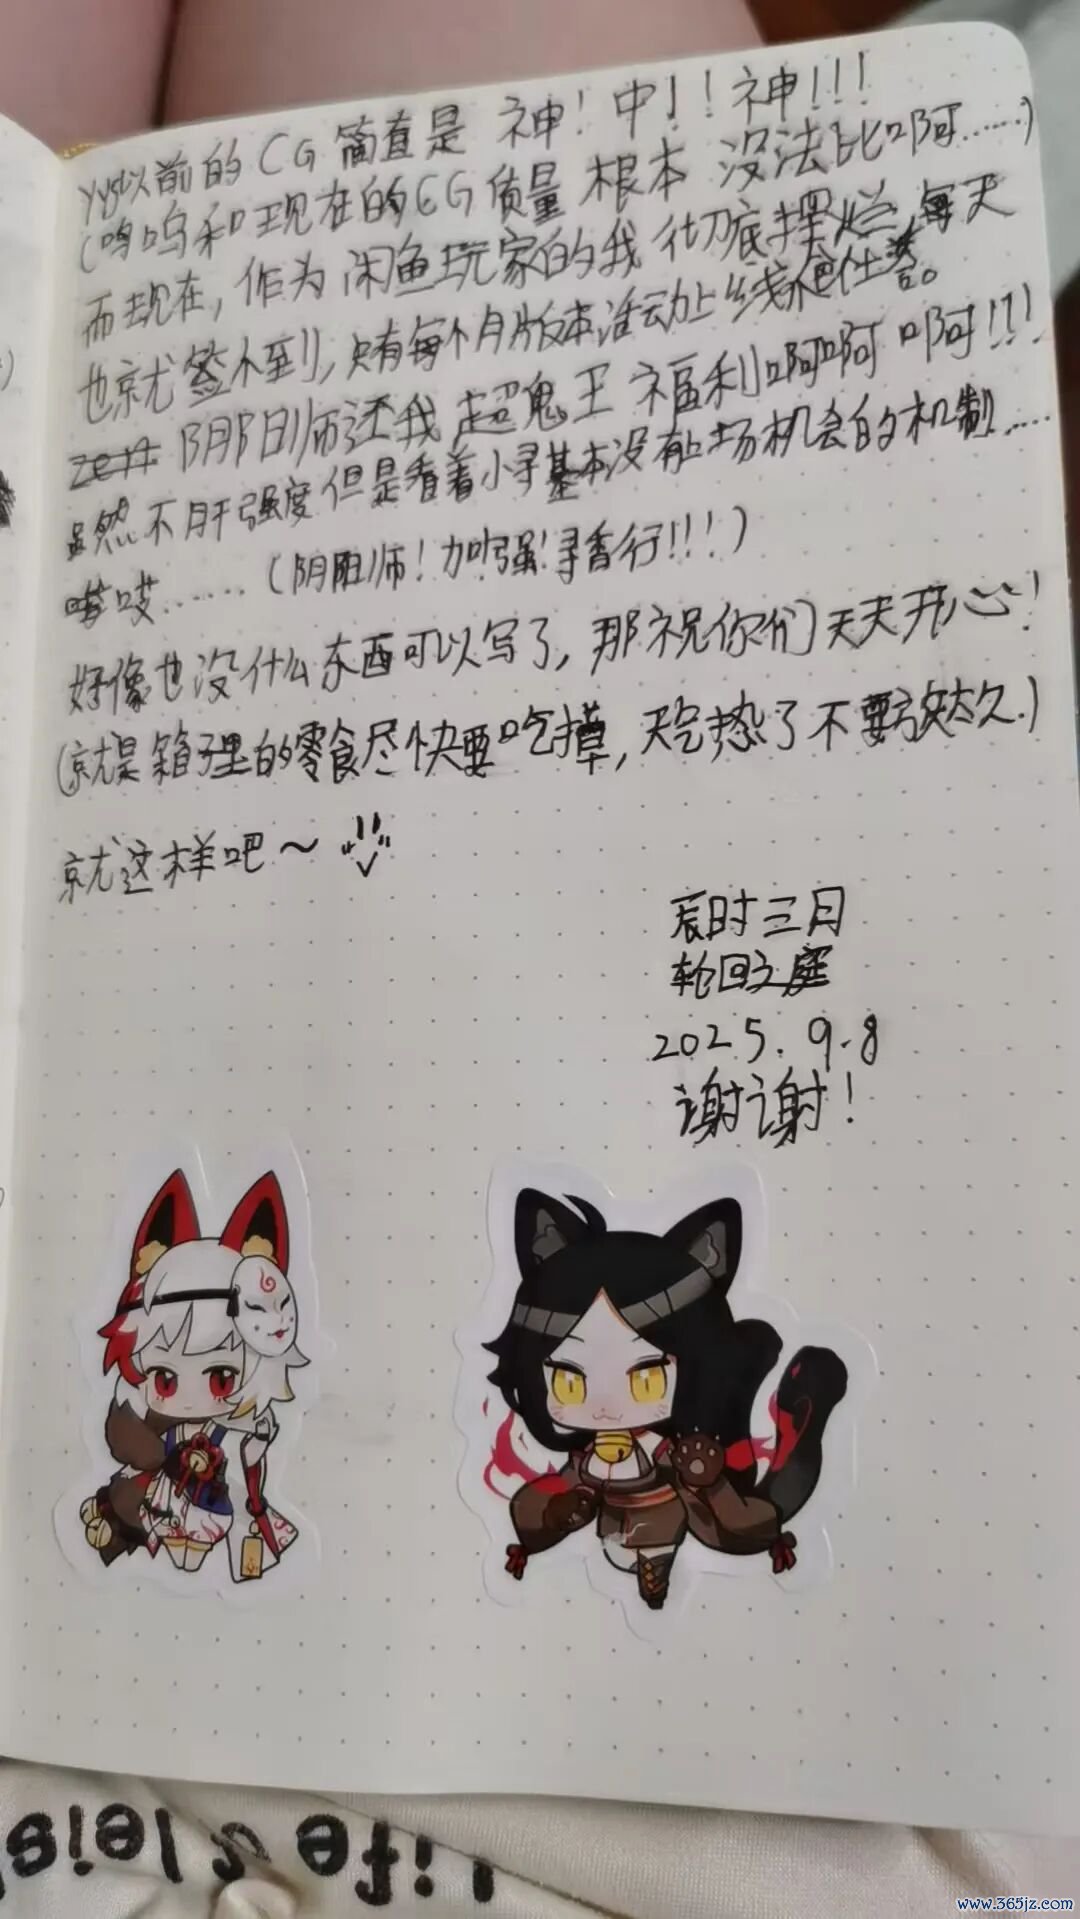 yys以前的CG简直是 神！中！！神！！！
（呜呜和现在的CG质量 根本 没法比啊……）
而现在，作为 闲鱼玩家的我 彻底摆烂，每天
也就签个到，只有每个月版本活动上线
阴阳师还我 超鬼王 福利啊啊啊 啊！！！
虽然不肝强度但是看着小寻基本没有上场机会的机制……
哎……（阴阳师！加强！寻香行！！！）
好像也没什么东西可以写了，那祝你们天天开心！
（就是箱子里的零食尽快要吃掉，天气热了不要放太久）
就这样吧～
辰时三月
轮回之庭
2025.9.8
谢谢！
Life's leis
www.365jz.com